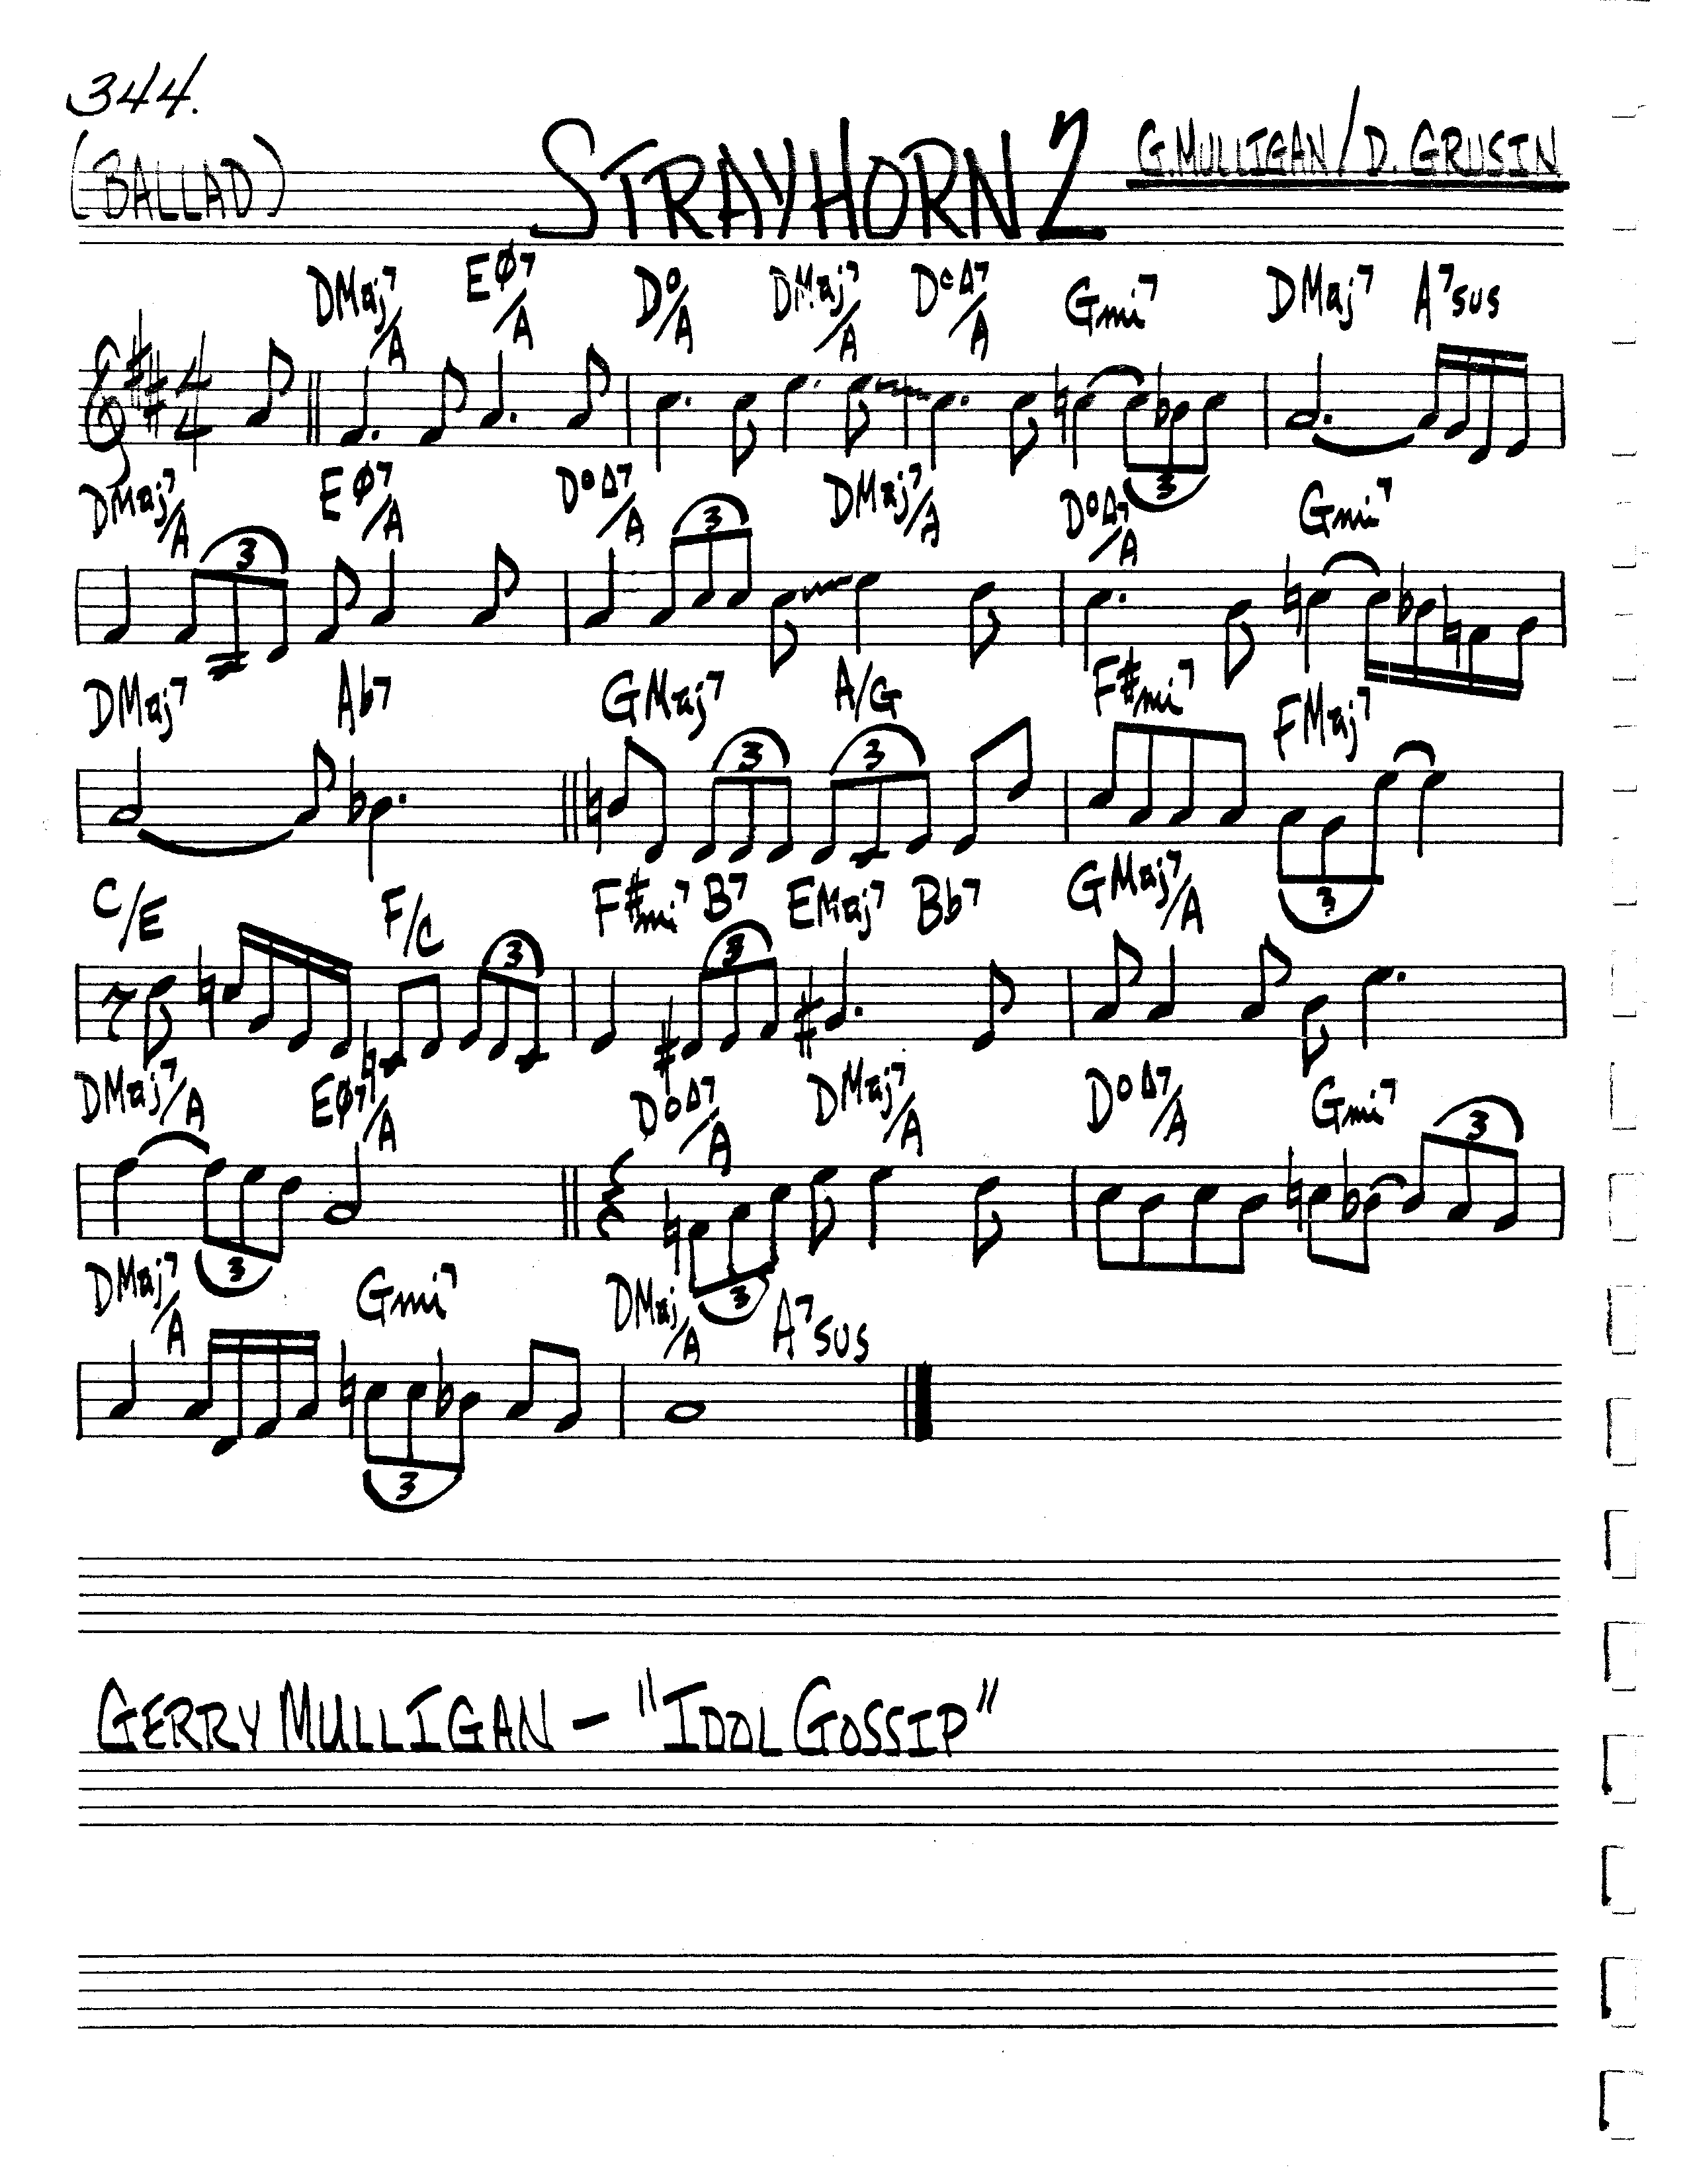 344.
(BALLAD) STRAYHORN 2 G. MULLIGAN / D. GRUSIN
DMaj7/A EØ7/A Do/A DMaj7/A DoΔ7/A Gmi7 DMaj7 A7sus
4/4
3
DMaj7/A EØ7/A DoΔ7/A DMaj7/A DoΔ7/A Gmi7
3 3
DMaj7 Ab7 GMaj7 A/G F#mi7 FMaj7
3 3 3
C/E F/C F#mi7 B7 EMaj7 Bb7 GMaj7/A
3 3
DMaj7/A EØ7/A DoΔ7/A DMaj7/A DoΔ7/A Gmi7
3 3 3
DMaj7/A Gmi7 DMaj/A A7sus
3
GERRY MULLIGAN – "IDOL GOSSIP"